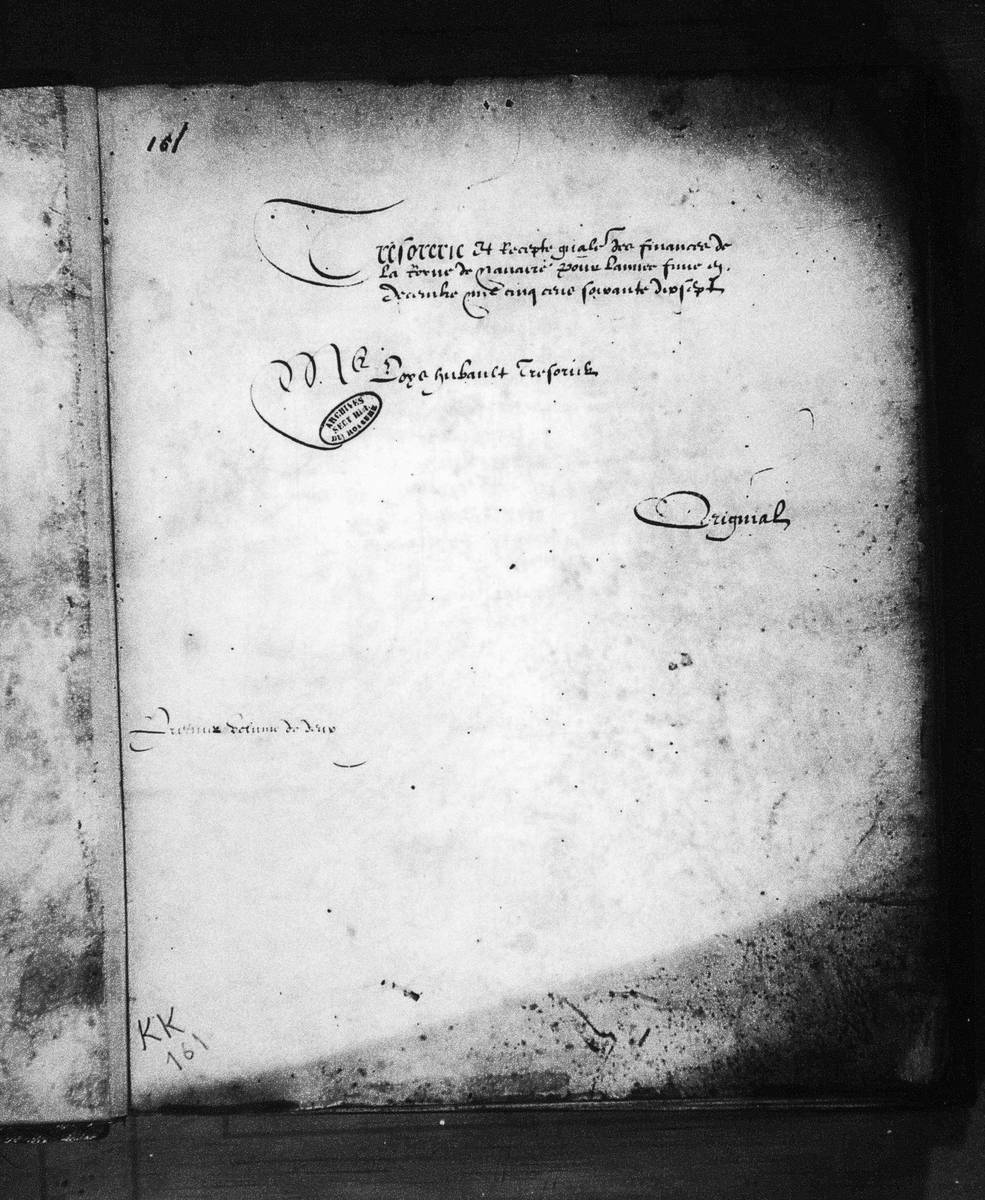 161
Tresorerie Et Recepte gnalle des finances de
La Royne de Navarre pour lannee finie en
decembre mil cinq cens soixante dix sept
Me Loys hubault Tresorier
ARCHIVES
SECT HIST
DU ROYAUME
Original
Premier volume de deux
KK
161